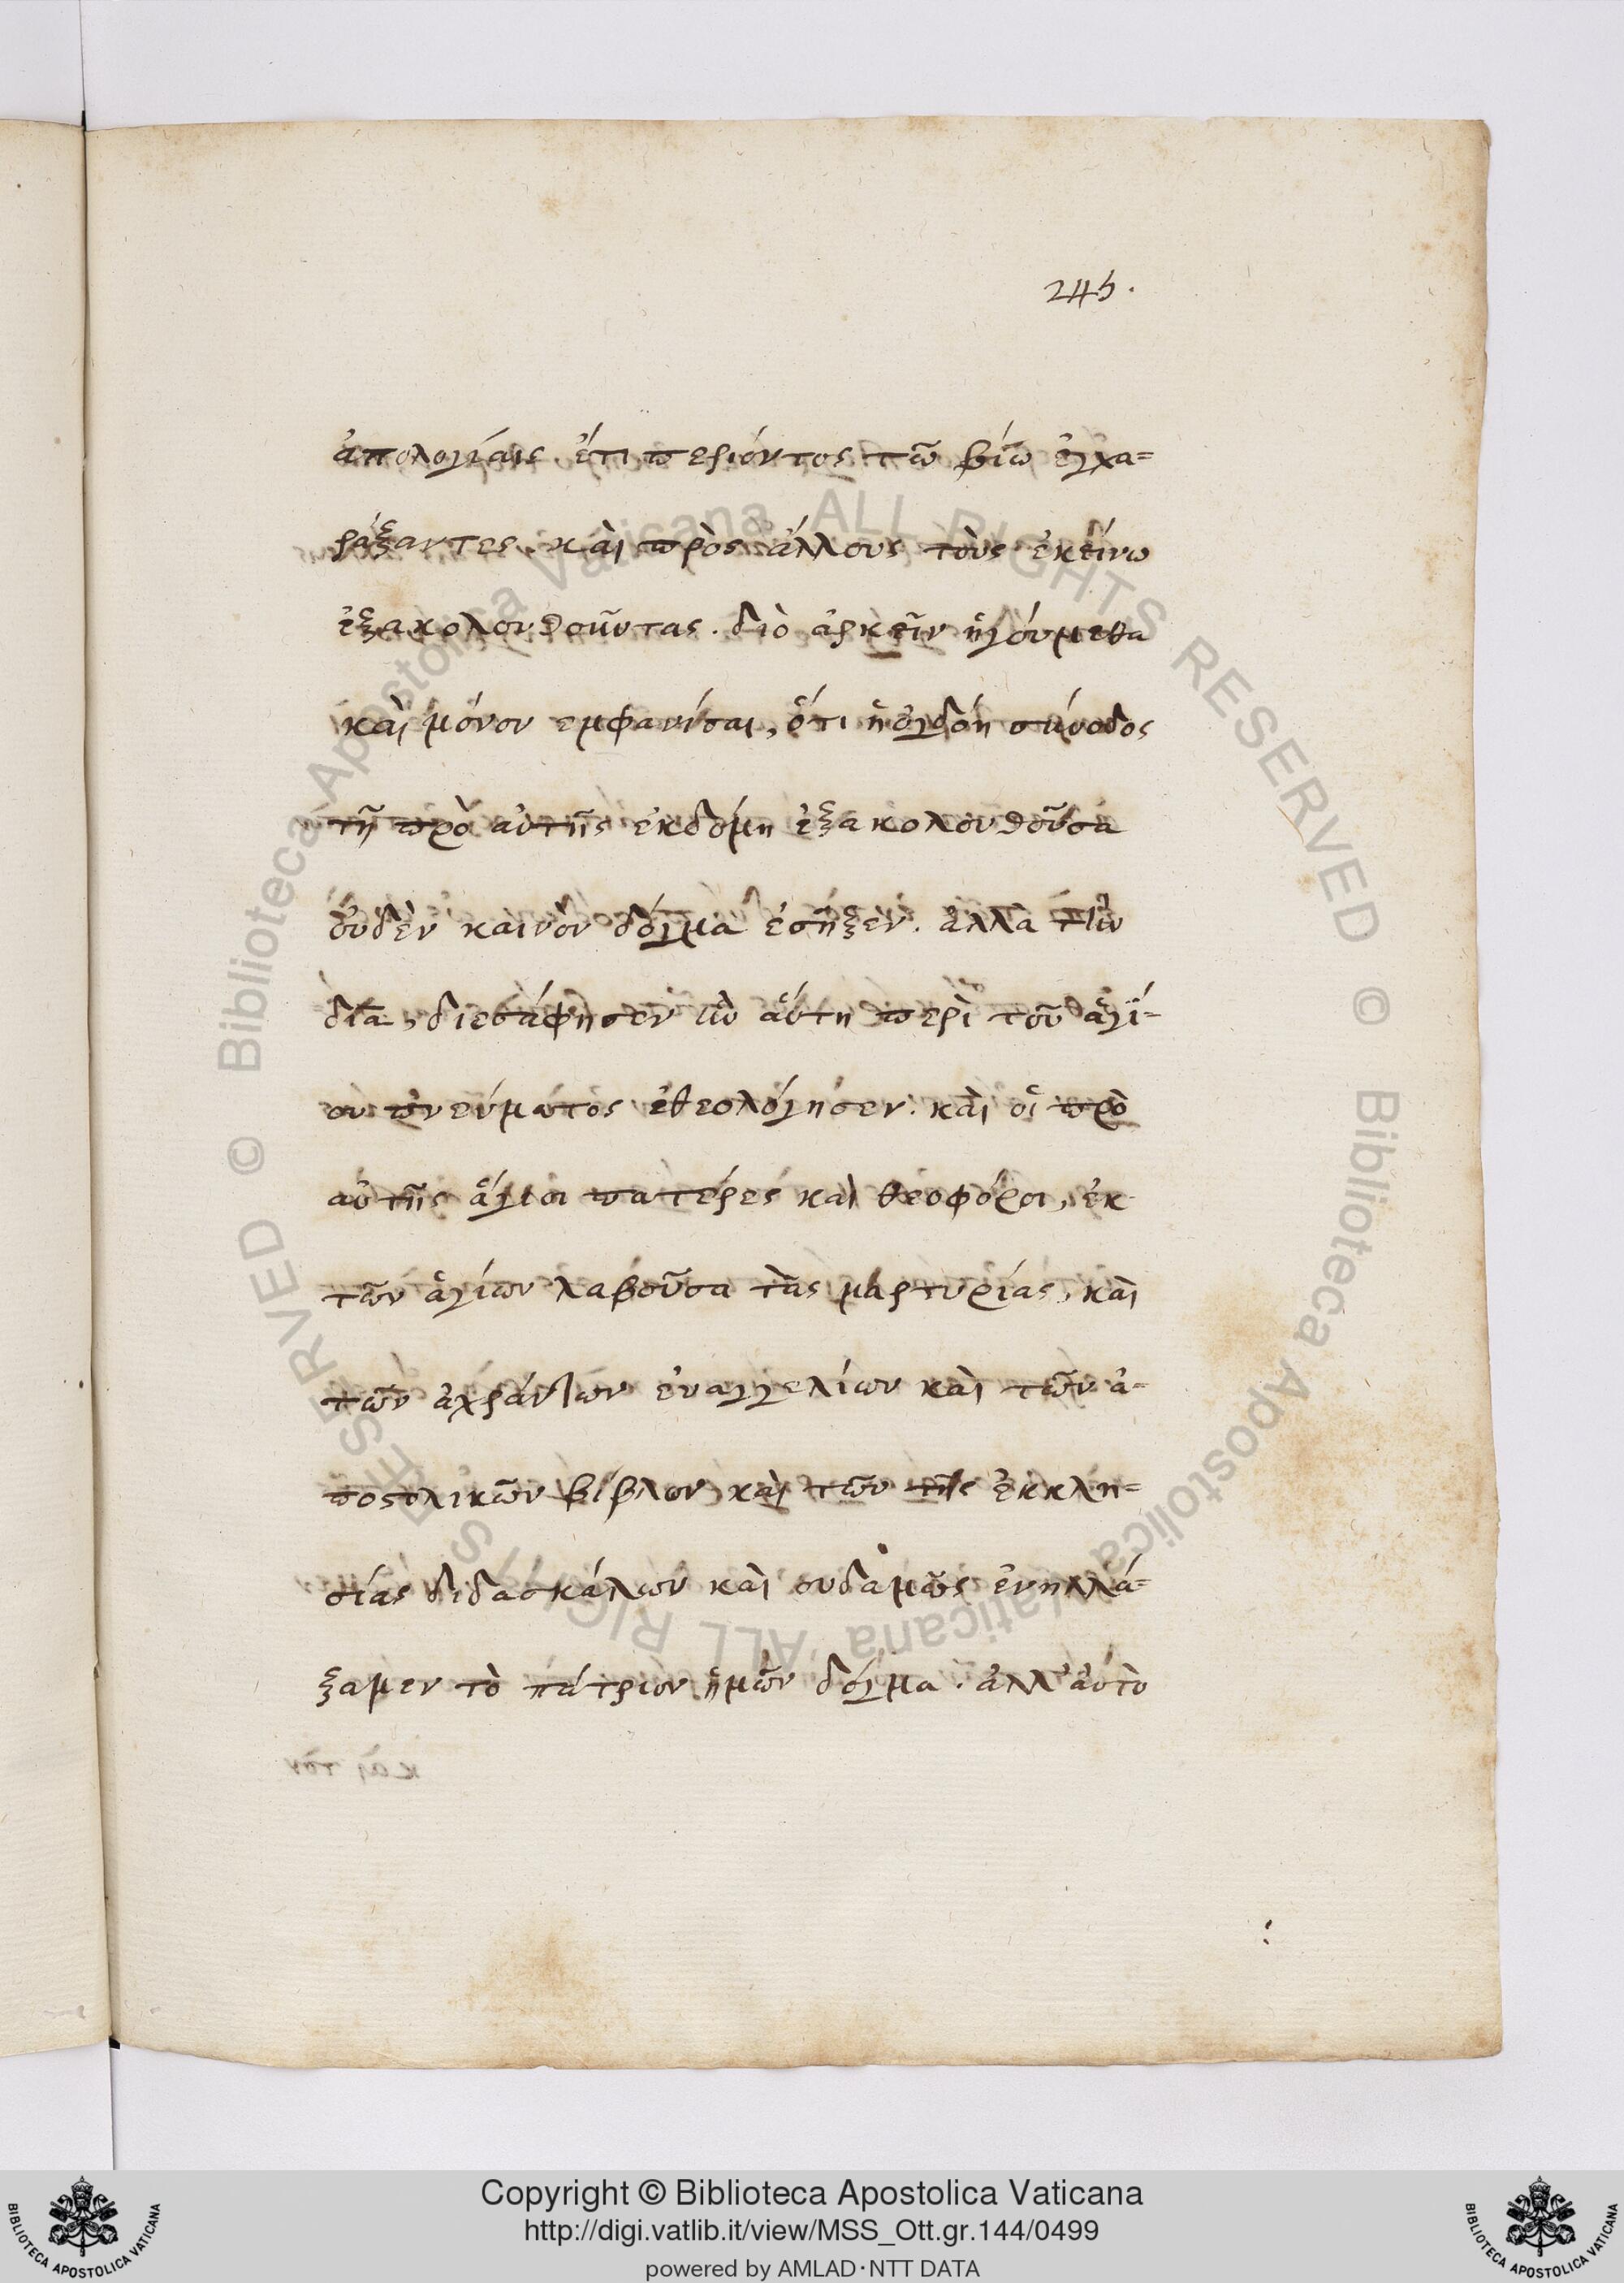 245.
ἀπολογίαις ἔτι περιόντος τῶ βίω ἐγχα=
ράξαντες. καὶ πρὸς ἄλλους τοὺς ἐκείνω
ἐξακολουθοῦντας. διὸ ἀρκεῖν ἡγούμεθα
καὶ μόνον εμφανίσαι, ὅτι ἡ ὀγδόη σύνοδος
τῆ πρὸ αὐτῆς ἑκδόμη ἐξακολουθοῦσα
οὐδὲν καινὸν δόγμα ἐσήξεν. ἀλλὰ τὴν
διὰ, διεσάφησεν ἣν αὕτη περὶ τοῦ ἁγί=
ου πνεύματος ἐθεολόγησεν. καὶ οἱ πρὸ
αὐτῆς ἅγιοι πατέρες καὶ θεοφόροι, ἐκ
τῶν ἁγίων λαβοῦσα τὰς μαρτυρίας, καὶ
τῶν ἀχράντων ἐυαγγελίων καὶ τῶν ἀ=
ποστολικῶν βίβλον καὶ τῶν τῆς ἐκκλη=
σίας διδασκάλων καὶ ουδαμῶς ἐνηλλά=
ξαμεν τὸ πάτριον ἡμῶν δόγμα. ἀλλ' ἀυτὸ
Copyright © Biblioteca Apostolica Vaticana
http://digi.vatlib.it/view/MSS_Ott.gr.144/0499
powered by AMLAD·NTT DATA
BIBLIOTECA APOSTOLICA VATICANA
BIBLIOTECA APOSTOLICA VATICANA
© Biblioteca Apostolica Vaticana ALL RIGHTS RESERVED
© Biblioteca Apostolica Vaticana ALL RIGHTS RESERVED